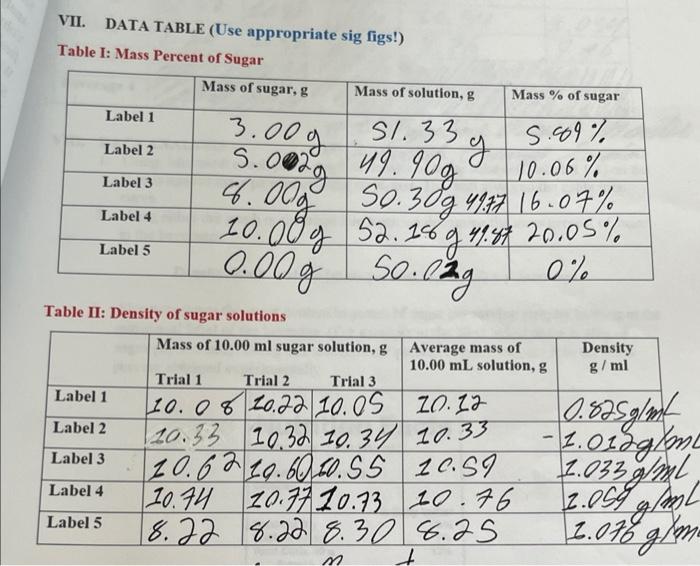 VII. DATA TABLE (Use appropriate sig figs!)
Table I: Mass Percent of Sugar
Mass of sugar, g Mass of solution, g Mass % of sugar
Label 1 3.00g 51.33g 5.889%
Label 2 5.002g 49.90g 10.06%
Label 3 8.00g 50.30g 49.77 16.07%
Label 4 10.00g 52.18g 49.87 20.05%
Label 5 0.00g 50.02g 0%
Table II: Density of sugar solutions
Mass of 10.00 ml sugar solution, g Average mass of 10.00 mL solution, g Density g / ml
Trial 1 Trial 2 Trial 3
Label 1 10.08 10.22 10.05 10.12 0.825g/mL
Label 2 10.33 10.32 10.34 10.33 -1.012g/mL
Label 3 10.62 10.60 10.55 10.59 1.033g/mL
Label 4 10.74 10.77 10.73 10.76 1.059g/mL
Label 5 8.22 8.22 8.30 8.25 1.076g/m